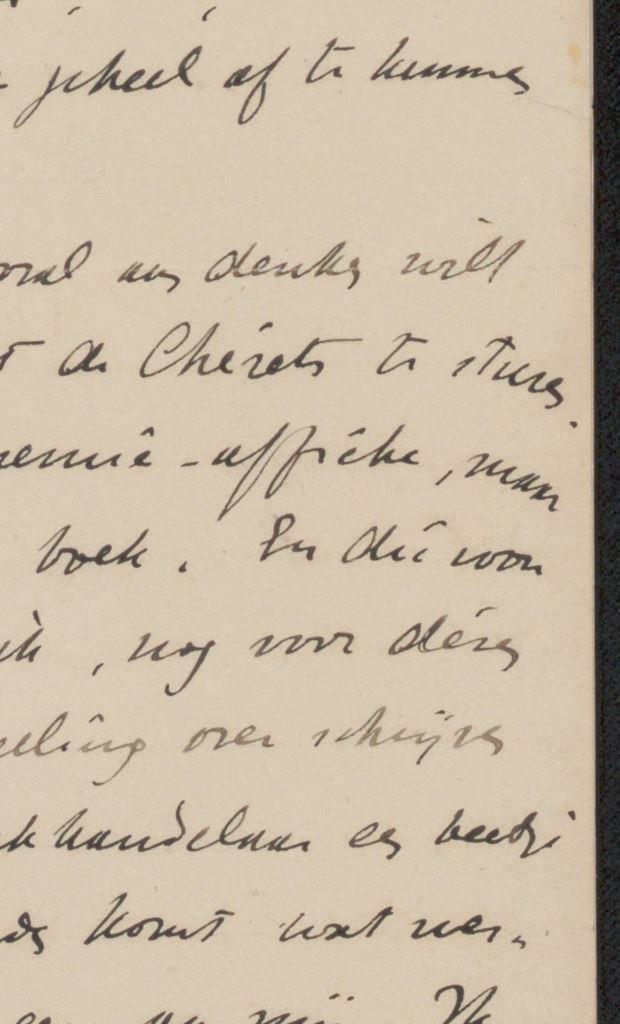 geheel af te kunnen
oral aan denken wilt
de Chérets te sturen.
-affiche, maar
boek. En die voor
ik, nog voor dézen
eling over schrijven
khandelaar een beetje
komt wat ver-
Ik